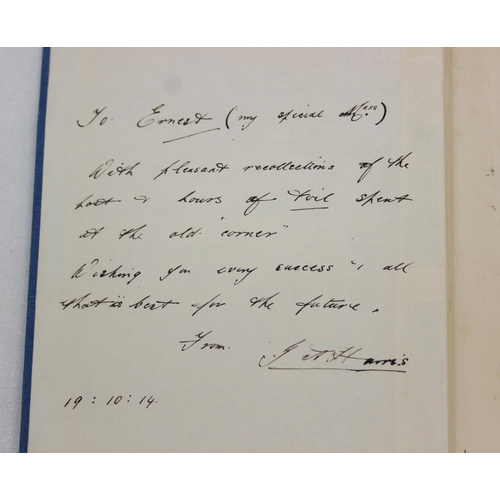 To Ernest (my special
With pleasant recollections of the
past & hours of toil spent
at the old "corner"
Wishing you every success & all
that is best for the future.
From.
J A Harris
19 : 10 : 14.